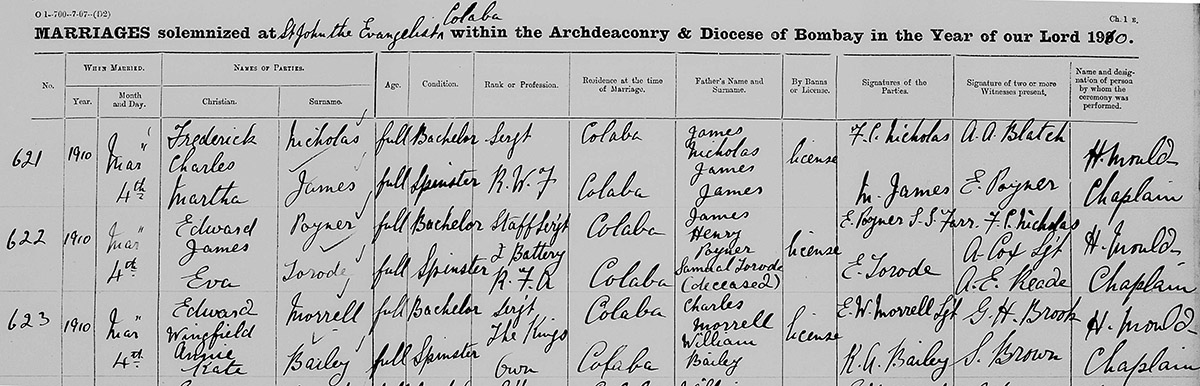 O 1--700--7-07--(D2)
Ch. 1 s.
Colaba
MARRIAGES solemnized at St John the Evangelist, within the Archdeaconry & Diocese of Bombay in the Year of our Lord 1910.
No. WHEN MARRIED. NAMES OF PARTIES. Age. Condition. Rank or Profession. Residence at the time of Marriage. Father's Name and Surname. By Banns or License. Signatures of the Parties. Signature of two or more Witnesses present, Name and designation of person by whom the ceremony was performed.
Year. Month and Day. Christian. Surname.
621 1910 Mar 4th Frederick Charles Nicholas full Bachelor Sergt Colaba James Nicholas license F. C. Nicholas A. A. Blatch H. Mould
Martha James full Spinster R. W. F Colaba James James M. James E. Poyner Chaplain
622 1910 Mar 4th Edward James Poyner full Bachelor Staff Sergt Colaba James Henry Poyner license E. Poyner S. S. Farr. F. C. Nicholas H. Mould
A. Cox Sgt
Eva Torode full Spinster Battery R. F. A Colaba Samuel Torode (deceased) E. Torode A. E. Reade Chaplain
623 1910 Mar 4th Edward Wingfield Morrell full Bachelor Sergt Colaba Charles Morrell license E. W. Morrell Sgt G. H. Brook H. Mould
Annie Kate Bailey full Spinster The Kings Own Colaba William Bailey K. A. Bailey S. Brown Chaplain